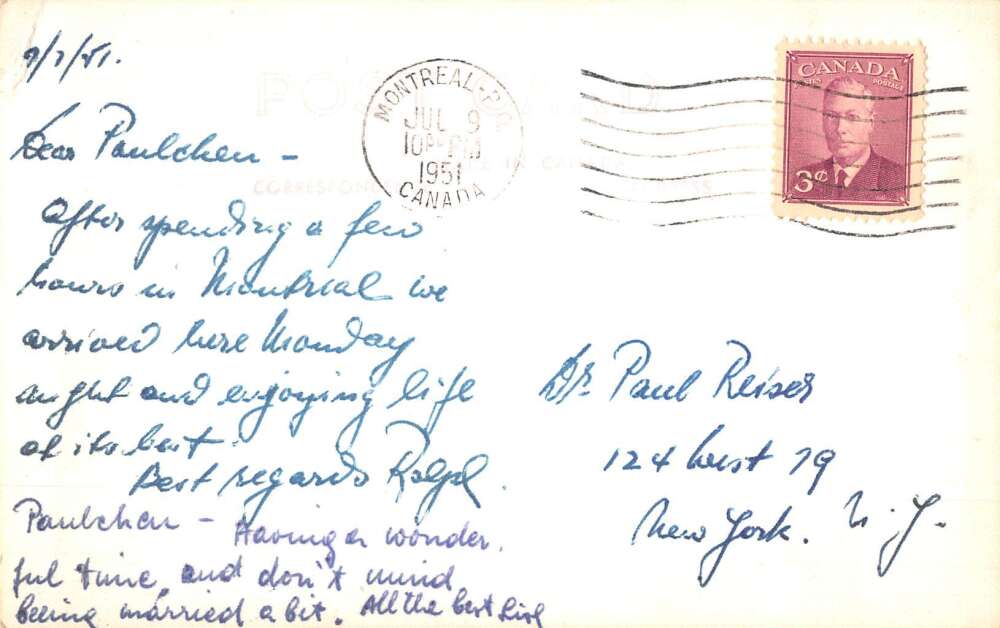 9/7/51.
Dear Paulchen –
After spending a few
hours in Montreal we
arrived here Monday
night and enjoying life
at its best.
Best regards Ralph.
Paulchen – Having a wonder.
ful time, and don't mind
being married a bit. All the best
MONTREAL-P.Q.
JUL 9
10 PM
1951
CANADA
CANADA
POSTES POSTAGE
3¢
POST CARD
MADE IN CANADA
CORRESPONDENCE ADDRESS
Dr. Paul Reiser
124 West 79
New York. N. Y.